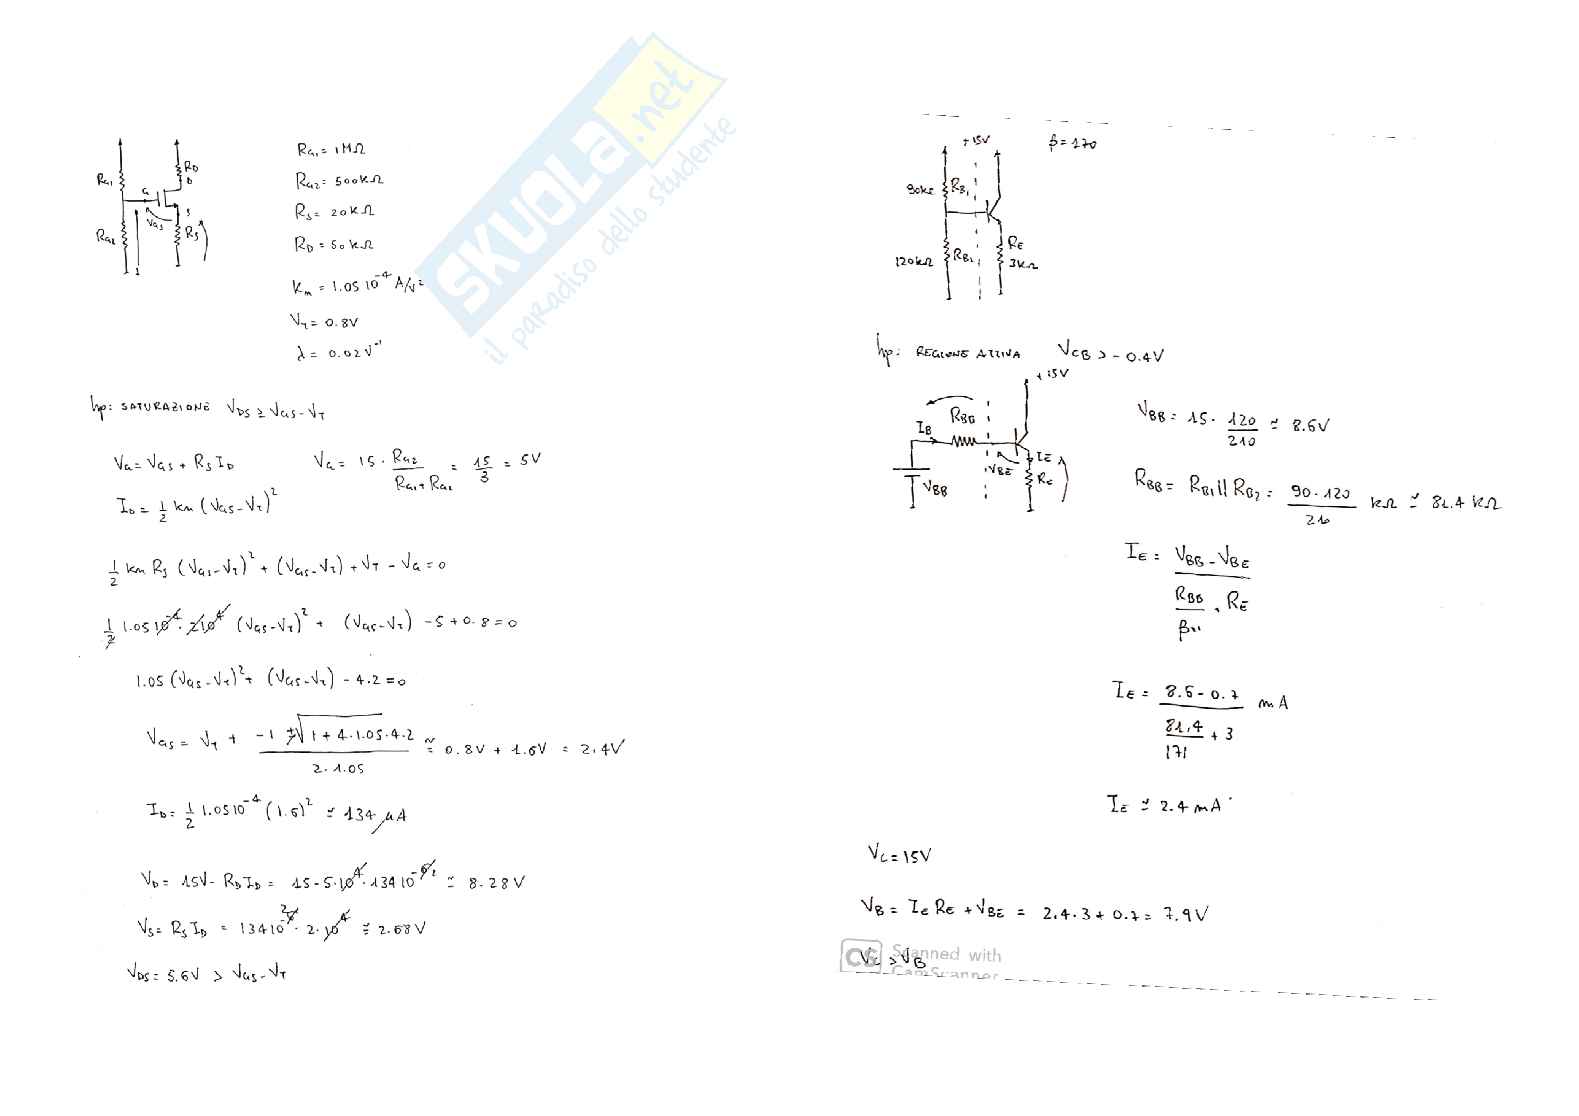 SKUOLA.net
il paradiso dello studente
RG1
RG2
RD
D
G
S
VGS
RS
RG1 = 1MΩ
RG2 = 500kΩ
RS = 20kΩ
RD = 50kΩ
Kn = 1.05 10^-4 A/V²
VT = 0.8V
λ = 0.02V^-1
hp: SATURAZIONE VDS ≥ VGS - VT
VG = VGS + RS ID
VG = 15 · RG2 / (RG1 + RG2) = 15/3 = 5V
ID = 1/2 kn (VGS - VT)²
1/2 kn RS (VGS - VT)² + (VGS - VT) + VT - VG = 0
1/2 1.05 10^-4 · 2 10^4 (VGS - VT)² + (VGS - VT) - 5 + 0.8 = 0
1.05 (VGS - VT)² + (VGS - VT) - 4.2 = 0
VGS = VT + (-1 ± √(1 + 4·1.05·4.2)) / (2·1.05) ≃ 0.8V + 1.6V = 2.4V
ID = 1/2 1.05 10^-4 (1.6)² ≃ 134 μA
VD = 15V - RD ID = 15 - 5·10^4 · 134 10^-6 ≃ 8.28V
VS = RS ID = 134 10^-6 · 2·10^4 ≃ 2.68V
VDS = 5.6V > VGS - VT
+15V
β = 170
90kΩ
RB1
120kΩ
RB2
RE
3kΩ
hp: REGIONE ATTIVA VCB > -0.4V
+15V
RBB
IB
VBE
IE
RE
VBB
VBB = 15 · 120/210 ≃ 8.6V
RBB = RB1 || RB2 = 90·120/210 kΩ ≃ 81.4 kΩ
IE = (VBB - VBE) / (RBB/(β+1) + RE)
IE = (8.6 - 0.7) / (81.4/171 + 3) mA
IE ≃ 2.4 mA
VC = 15V
VB = IE RE + VBE = 2.4·3 + 0.7 = 7.9V
VC > VB
CS Scanned with
CamScanner